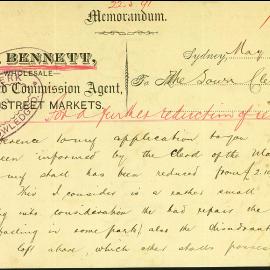 22.5.91
Memorandum.
BENNETT,
Sydney, May
WHOLESALE
d Commission Agent,
To The Town Cle
STREET MARKETS.
For a further reduction of re
erence to my application to you
een informed by the Clerk of the Ma
my stall has been reduced from £2.10
This I consider is a rather small
ing into consideration the bad repair the
eading in some parts) also the disadvant
loft above, which other stalls possess